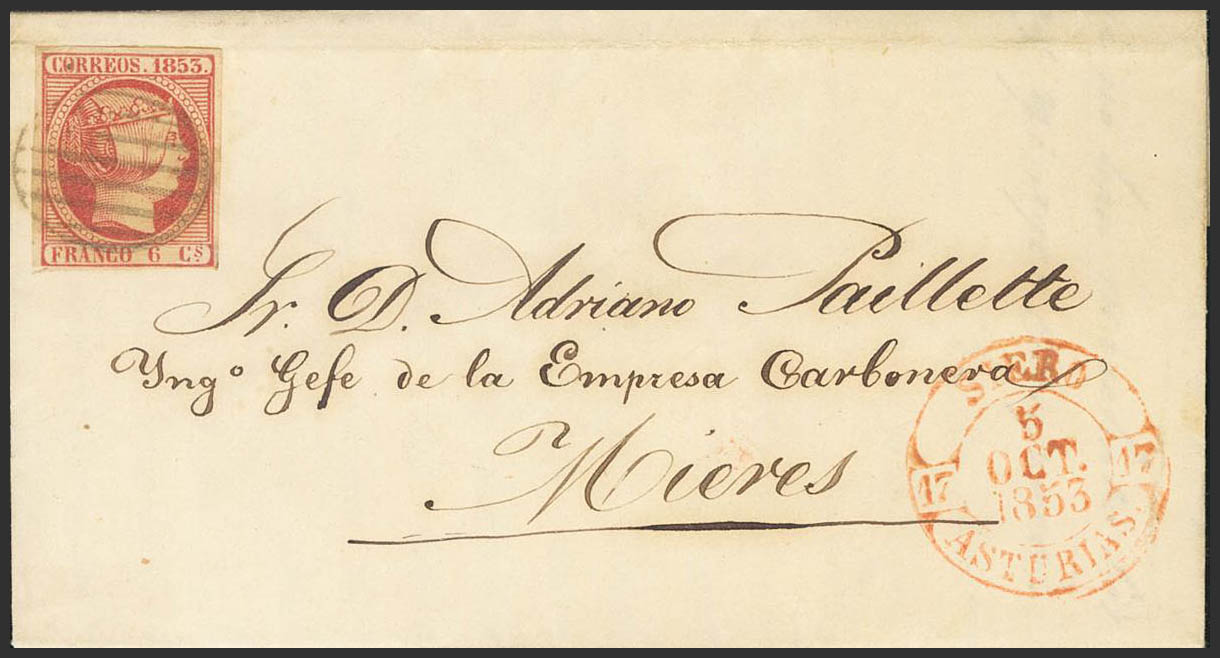 CORREOS. 1853.
FRANCO 6 Cs
Sr. D. Adriano Paillette
Yngo Gefe de la Empresa Carbonera
Mieres
SIERO
5
OCT.
1853
17
17
ASTURIAS.